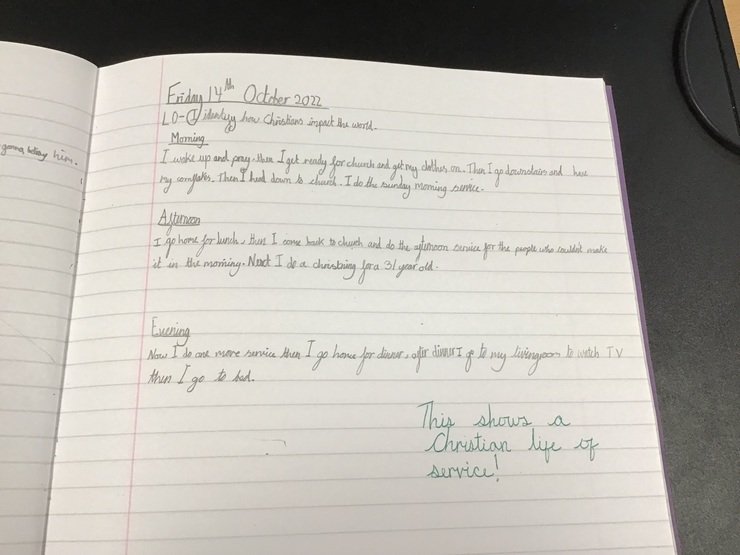 gonna betray him.
Friday 14th October 2022
LO-(I) identify how Christians impact the world.
Morning
I wake up and pray. then I get ready for church and get my clothes on. Then I go downstairs and have
my cornflakes. Then I head down to church. I do the sunday morning service.
Afternoon
I go home for lunch, then I come back to church and do the afternoon service for the people who couldn't make
it in the morning. Next I do a christning for a 31 year old.
Evening
Now I do one more service then I go home for dinner. after dinner I go to my livingroom to watch TV
then I go to bad.
This shows a
Christian life of
service!